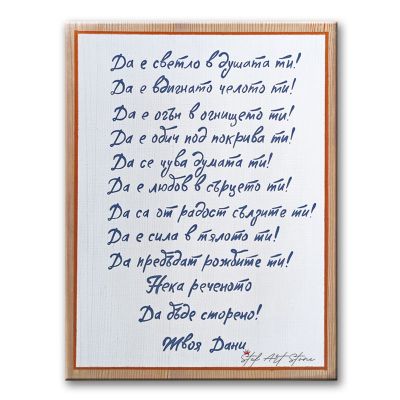 Да е светло в душата ти!
Да е вдигнато челото ти!
Да е огън в огнището ти!
Да е обич под покрива ти!
Да се чува думата ти!
Да е любов в сърцето ти!
Да са от радост сълзите ти!
Да е сила в тялото ти!
Да предъдат рожбите ти!
Нека реченото
Да бъде сторено!
Твоя Дани
Stef Art Store